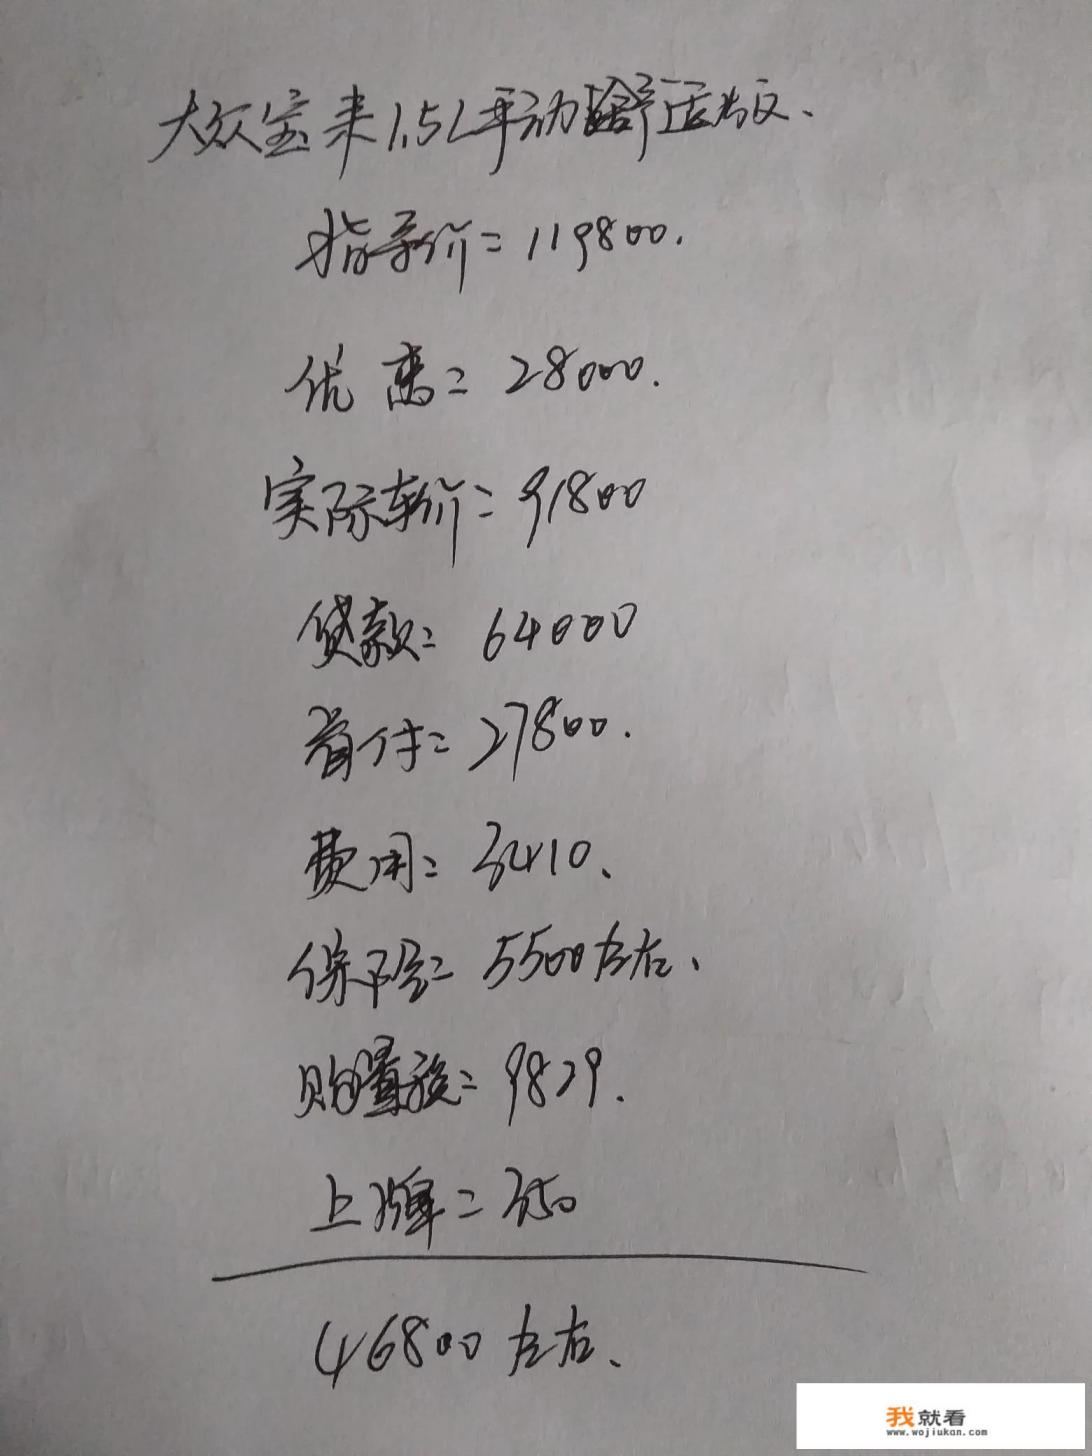 大众宝来1.5L手动舒适版.
指导价=119800.
优惠=28000.
实际车价=91800
贷款=64000
首付=27800.
费用=3410、
保险=5500左右、
购置税=9829.
上牌=350
46800左右、
我就看
www.wojiukan.com